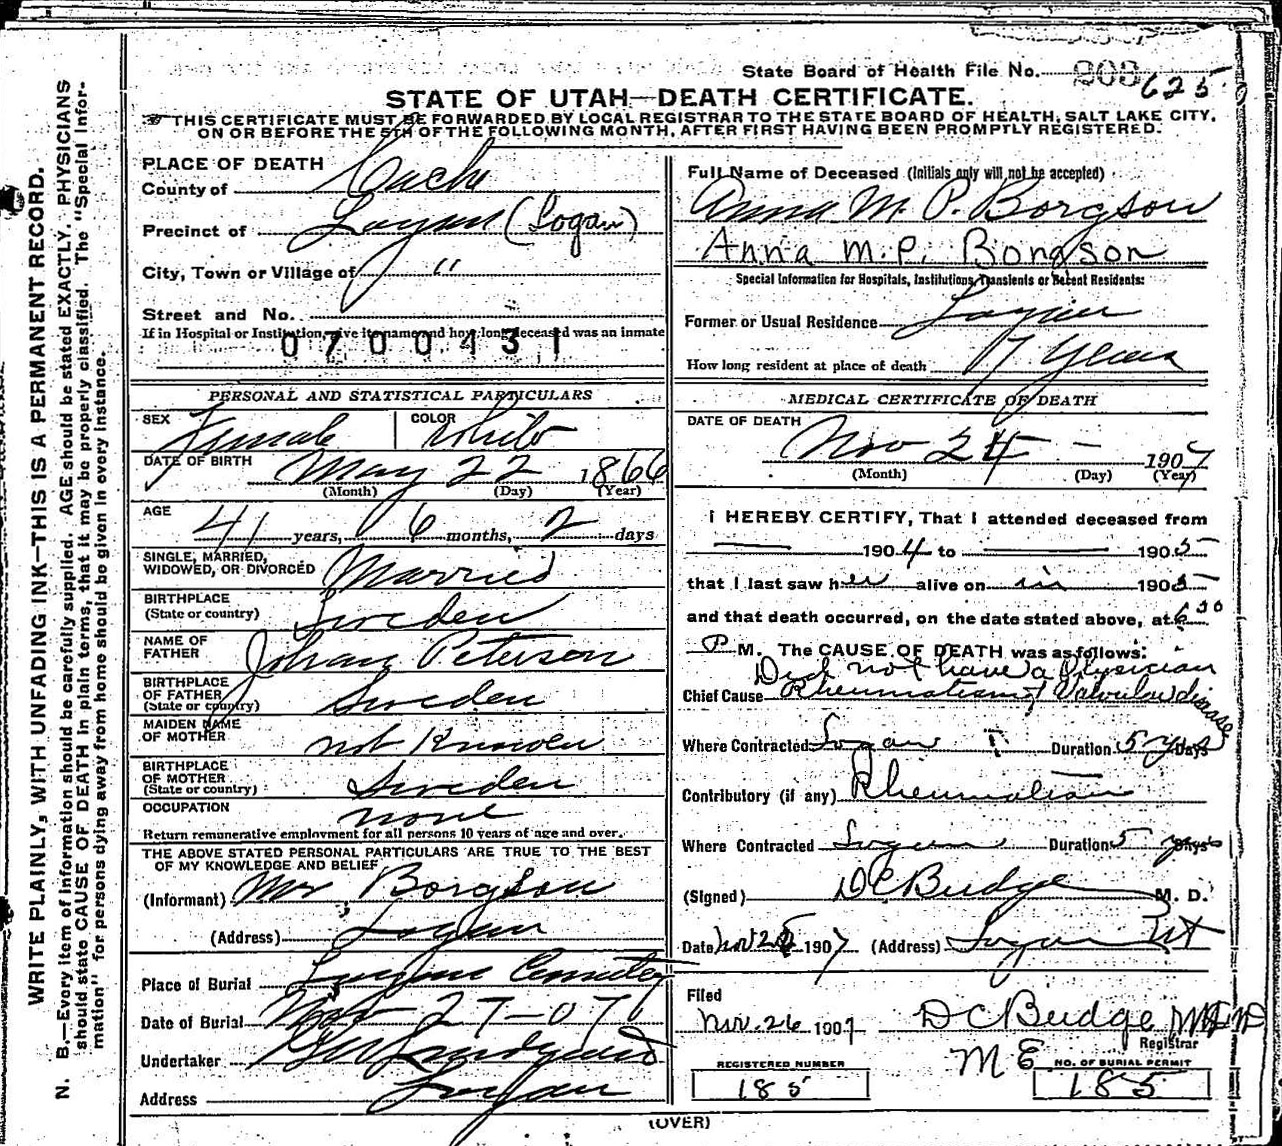 WRITE PLAINLY, WITH UNFADING INK—THIS IS A PERMANENT RECORD.
N. B.—Every item of information should be carefully supplied. AGE should be stated EXACTLY. PHYSICIANS
should state CAUSE OF DEATH in plain terms, that it may be properly classified. The "Special Infor-
mation" for persons dying away from home should be given in every instance.
State Board of Health File No. 625
STATE OF UTAH—DEATH CERTIFICATE.
THIS CERTIFICATE MUST BE FORWARDED BY LOCAL REGISTRAR TO THE STATE BOARD OF HEALTH, SALT LAKE CITY,
ON OR BEFORE THE 5TH OF THE FOLLOWING MONTH, AFTER FIRST HAVING BEEN PROMPTLY REGISTERED.
PLACE OF DEATH
County of Cache
Precinct of Logan (Logan)
City, Town or Village of "
Street and No.
If in Hospital or Institution, give its name and how long deceased was an inmate
0700431
PERSONAL AND STATISTICAL PARTICULARS
SEX Female COLOR White
DATE OF BIRTH May 22 1866
(Month) (Day) (Year)
AGE 41 years, 6 months, 2 days
SINGLE, MARRIED,
WIDOWED, OR DIVORCED Married
BIRTHPLACE
(State or country) Sweden
NAME OF
FATHER Johan Peterson
BIRTHPLACE
OF FATHER
(State or country) Sweden
MAIDEN NAME
OF MOTHER not Known
BIRTHPLACE
OF MOTHER
(State or country) Sweden
OCCUPATION none
Return remunerative employment for all persons 10 years of age and over.
THE ABOVE STATED PERSONAL PARTICULARS ARE TRUE TO THE BEST
OF MY KNOWLEDGE AND BELIEF
(Informant) Mr Borgson
(Address) Logan
Place of Burial Logan Cemetery
Date of Burial Nov 27-07
Undertaker
Address Logan
Full Name of Deceased (Initials only will not be accepted)
Anna M. P. Borgson
Anna M.P. Bongson
Special Information for Hospitals, Institutions, Transients or Recent Residents:
Former or Usual Residence Logan
How long resident at place of death 17 Years
MEDICAL CERTIFICATE OF DEATH
DATE OF DEATH
Nov 24 — 1907
(Month) (Day) (Year)
I HEREBY CERTIFY, That I attended deceased from
1904 to 1905
that I last saw her alive on in 1905
and that death occurred, on the date stated above, at 6 30
P M. The CAUSE OF DEATH was as follows:
Did not have a Physician
Chief Cause Rheumatism & Valvular disease
Where Contracted Logan Duration 5 yrs Days
Contributory (if any) Rheumatism
Where Contracted Logan Duration 5 yrs Days
(Signed) D C Budge M. D.
Date Nov 25 1907 (Address) Logan Ut
Filed
Nov. 26 1907 D C Budge M D
Registrar
REGISTERED NUMBER M E NO. OF BURIAL PERMIT
185 185
(OVER)